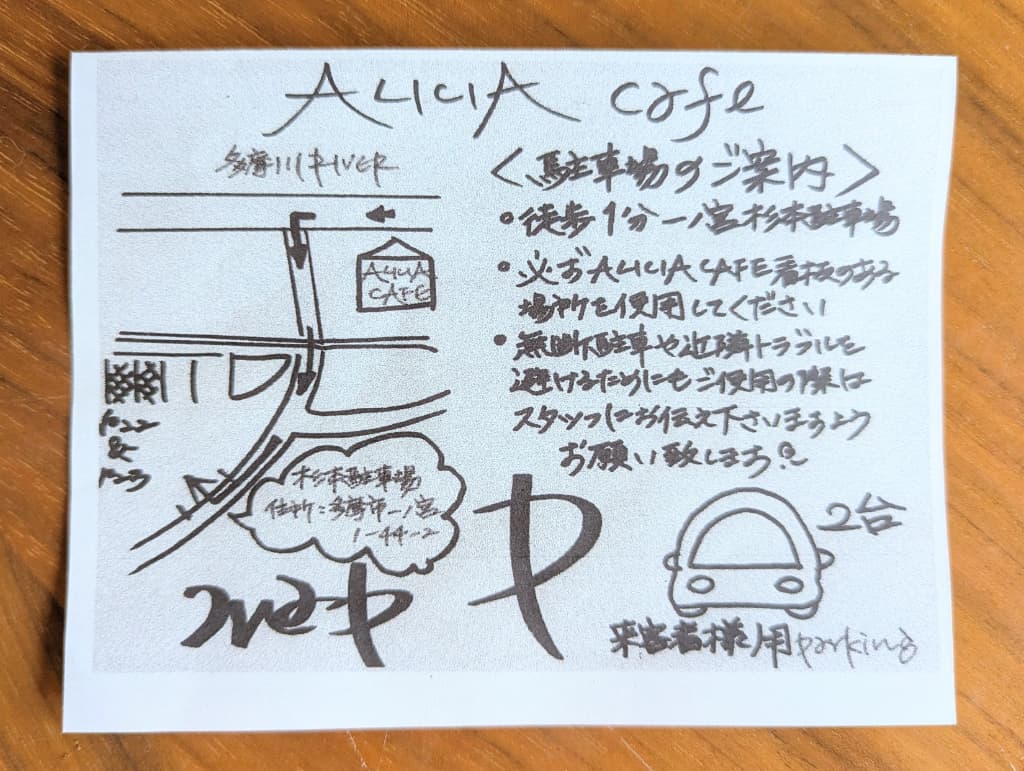 ALICIA cafe
多摩川RIVER
ALICIA
CAFE
No22
&
No23
杉本駐車場
住所:多摩市一ノ宮
1-44-2
map
<駐車場のご案内>
・徒歩1分一ノ宮杉本駐車場
・必ずALICIA CAFE看板のある
場所を使用してください
・無断駐車や近隣トラブルを
避けるためにもご使用の際は
スタッフにお伝え下さいますよう
お願い致します
P
2台
来客者様用parking